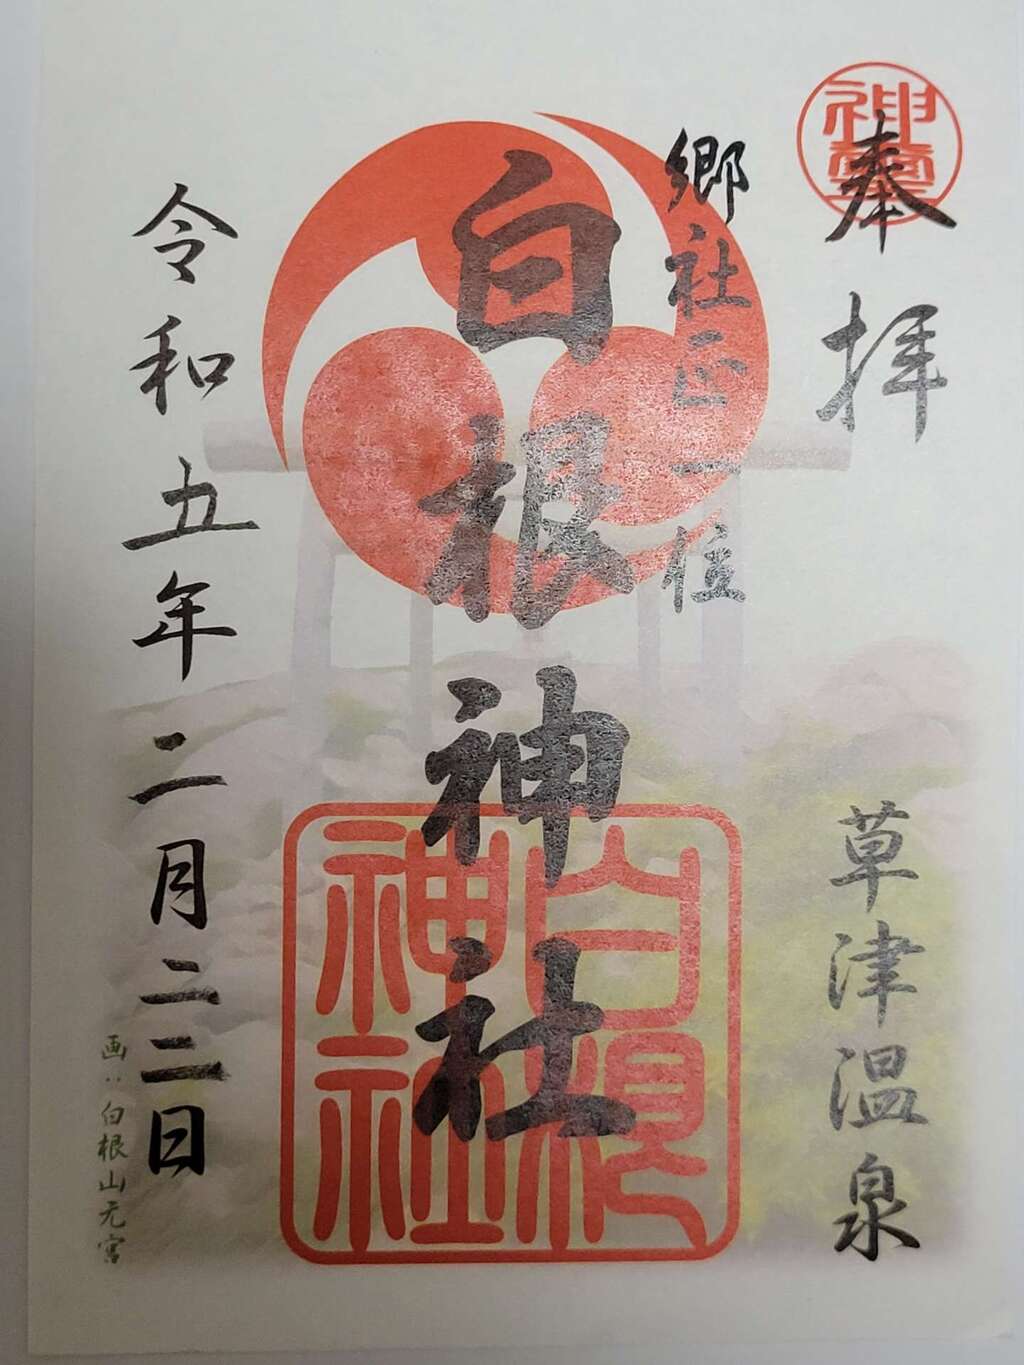 奉拝
草津温泉
郷社正一位
白根神社
白根
神社
令和五年二月二三日
画:白根山元宮